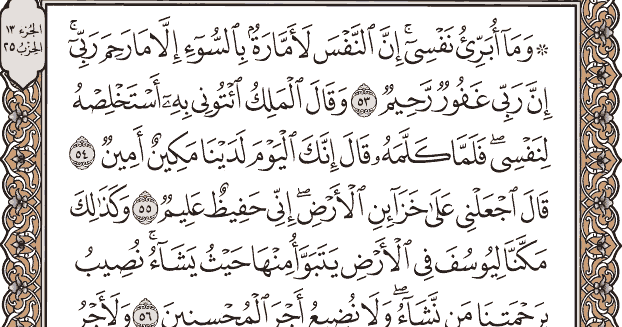 الجزء ١٣
الحزب ٢٥
۞ وَمَآ أُبَرِّئُ نَفْسِىٓ ۚ إِنَّ ٱلنَّفْسَ لَأَمَّارَةٌۢ بِٱلسُّوٓءِ إِلَّا مَا رَحِمَ رَبِّىٓ ۚ
إِنَّ رَبِّى غَفُورٌ رَّحِيمٌ ٥٣ وَقَالَ ٱلْمَلِكُ ٱئْتُونِى بِهِۦٓ أَسْتَخْلِصْهُ
لِنَفْسِى ۖ فَلَمَّا كَلَّمَهُۥ قَالَ إِنَّكَ ٱلْيَوْمَ لَدَيْنَا مَكِينٌ أَمِينٌ ٥٤
قَالَ ٱجْعَلْنِى عَلَىٰ خَزَآئِنِ ٱلْأَرْضِ ۖ إِنِّى حَفِيظٌ عَلِيمٌ ٥٥ وَكَذَٰلِكَ
مَكَّنَّا لِيُوسُفَ فِى ٱلْأَرْضِ يَتَبَوَّأُ مِنْهَا حَيْثُ يَشَآءُ ۚ نُصِيبُ
بِرَحْمَتِنَا مَن نَّشَآءُ ۖ وَلَا نُضِيعُ أَجْرَ ٱلْمُحْسِنِينَ ٥٦ وَلَأَجْرُ